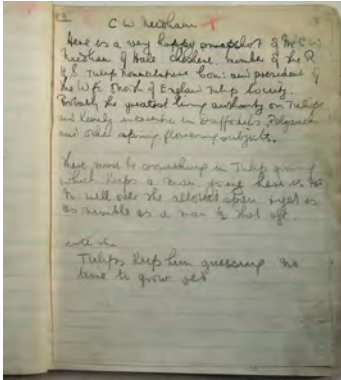 C W Needham
Here is a very happy snapshot of Mr C W
Needham of Hale Cheshire. member of the R
H S Tulip Nomenclature Com: and president of
the Wfd. North of England Tulip Society.
Probably the greatest living authority on Tulips
and keenly interested in Daffodils, Polyanthus
and other spring flowering subjects.
There must be something in Tulip growing
which keeps a man young here is Mr
N well over the allotted span & yet is
as nimble as a man to that age.
Tulips keep him guessing no
time to grow old